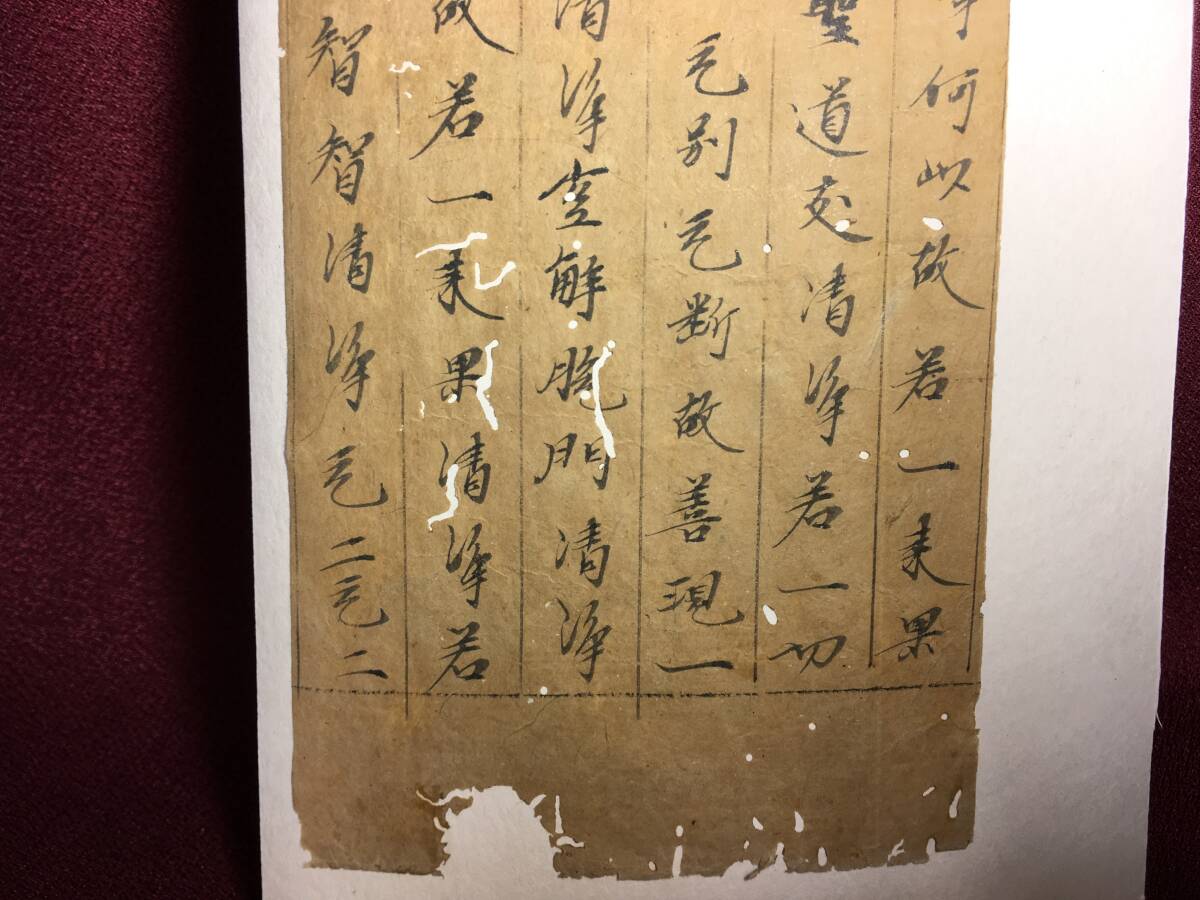 何以故若一来果
聖道支清淨若一切
无別无断故善現一
清淨空解脫門清淨
故若一来果清淨若
智智清淨无二无二